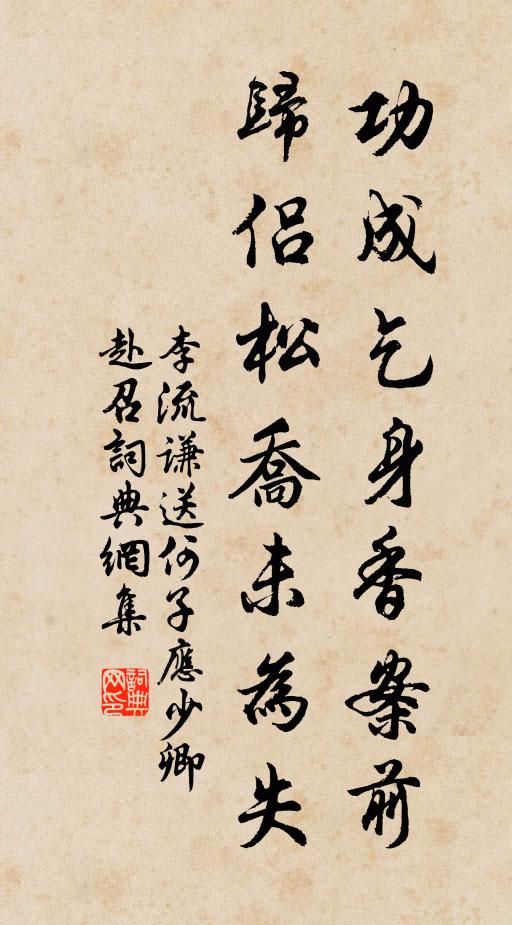 功成乞身香案前
歸侶松喬未為失
李流謙送何子應少卿
赴召詞典網集
詞典
网印